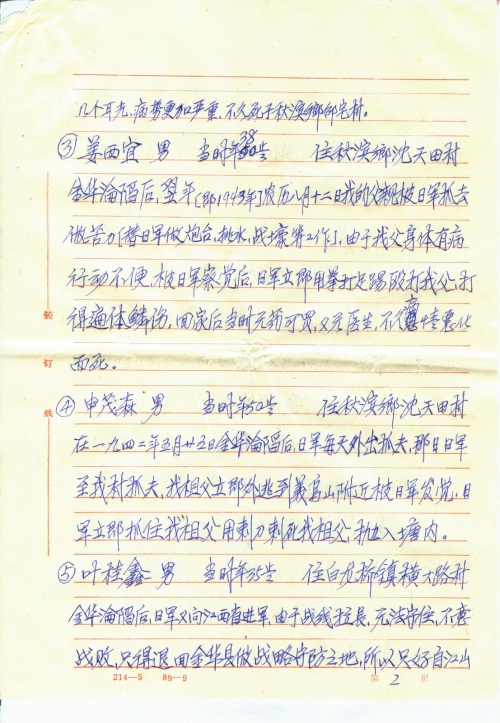 几个耳光，病势更加严重，不久死于秋滨乡邱宅村。
③姜西宜 男 当时年38岁 住秋滨乡沈天田村
金华沦陷后，翌年（即1943年）农历八月十二日我的父亲被日军抓去
做苦力（替日军做炮台，挑水，战壕等工作），由于我父身体有病
行动不便，被日军察觉后，日军立即用拳打足踢殴打我父，打
得遍体鳞伤，回家后当时无药可买，又无医生，不久病情恶化
而死。
④申茂森 男 当时年50岁 住秋滨乡沈天田村
在一九四二年五月廿五日金华沦陷后，日军每天外出抓夫，那日日军
至我村抓夫，我祖父立即外逃到 山附近被日军发觉，日
军立即抓住我祖父用刺刀刺死我祖父，扔入塘内。
⑤叶桂鑫 男 当时年35岁 住白龙桥镇横大路村
金华沦陷后，日军又向江西省进军，由于战线拉長，无法守住，不意
战败，只得退回金华县做战略守防之地，所以只好自江山
装
订
线
214—5 89—9
第 2 页